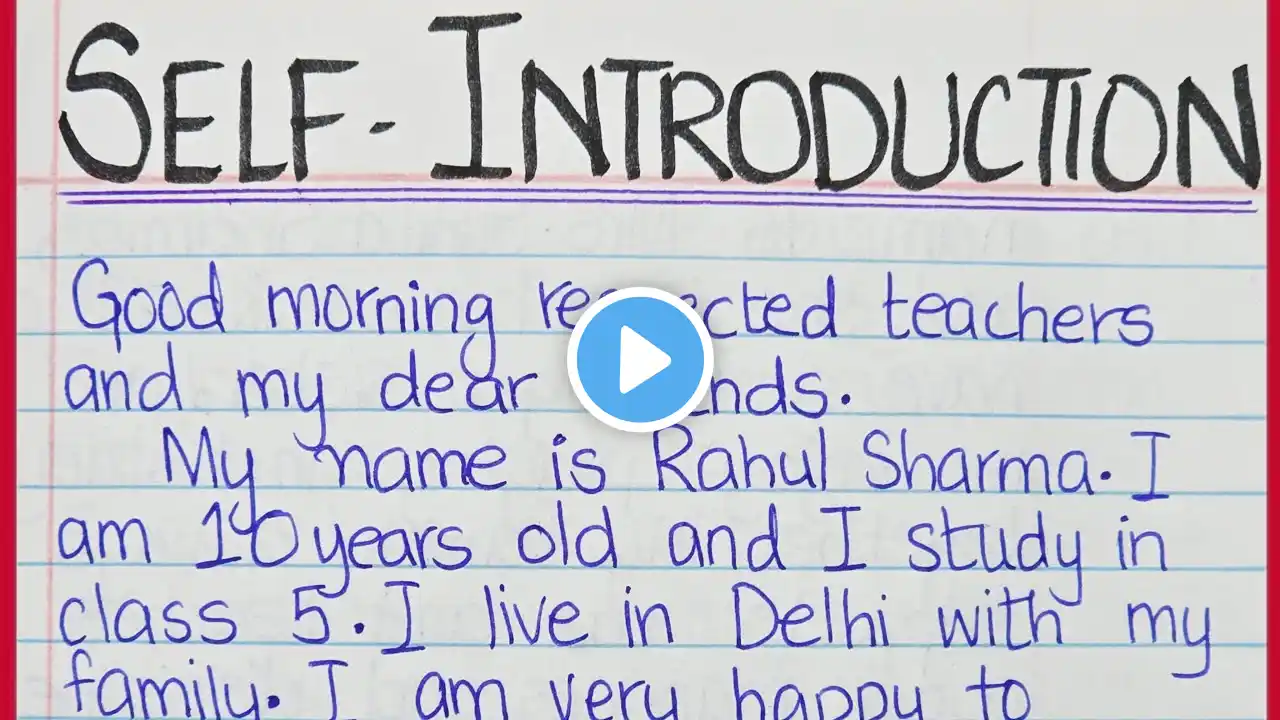 SELF-INTRODUCTION
Good morning teachers
and my dear
My name is Rahul Sharma. I
am 10 years old and I study in
class 5. I live in Delhi with my
family. I am very happy to